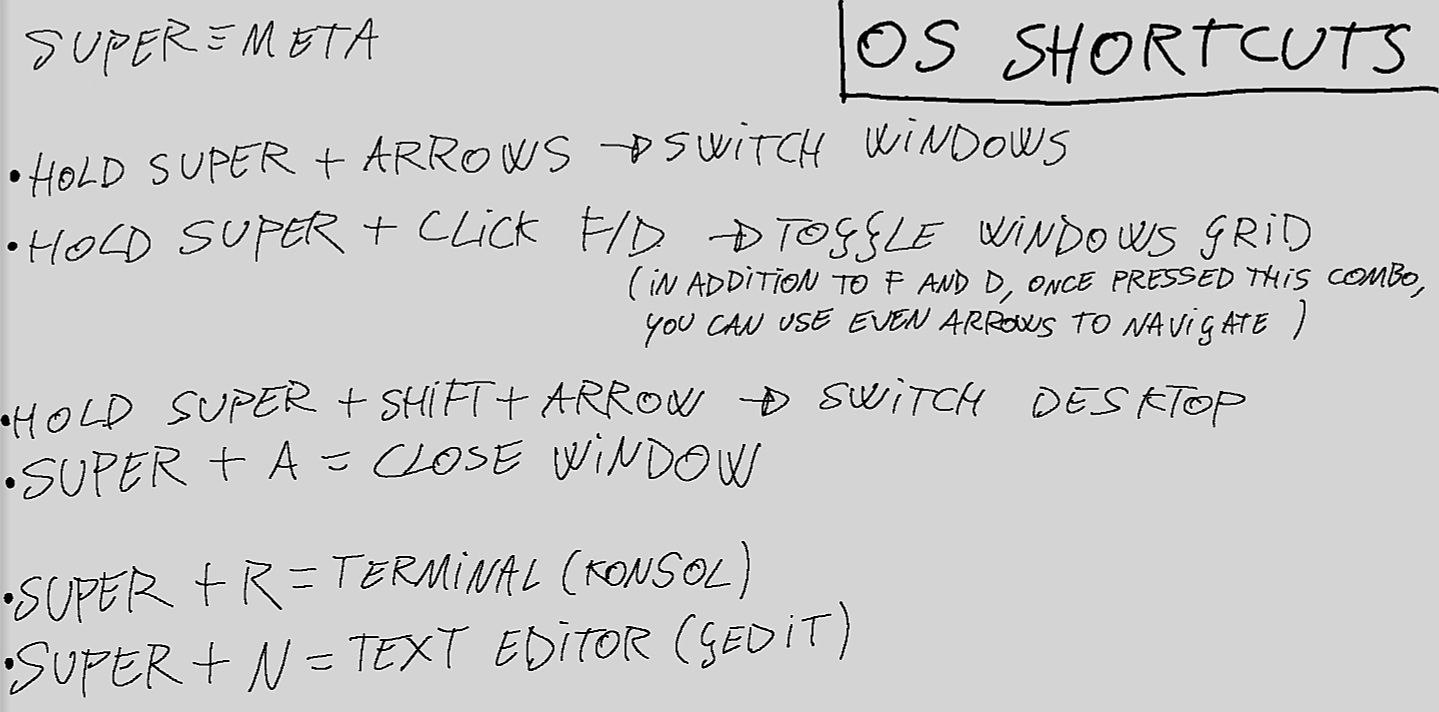 SUPER≡META
OS SHORTCUTS
•HOLD SUPER + ARROWS → SWiTCH WiNDOWS
•HOLD SUPER + CLiCK F/D → TOGGLE WiNDOWS GRiD
(iN ADDiTiON TO F AND D, ONCE PRESSED THiS COMBO,
YOU CAN USE EVEN ARROWS TO NAViGATE)
•HOLD SUPER + SHiFT + ARROW → SWiTCH DESKTOP
•SUPER + A = CLOSE WiNDOW
•SUPER + R = TERMiNAL (KONSOL)
•SUPER + N = TEXT EDiTOR (GEDiT)